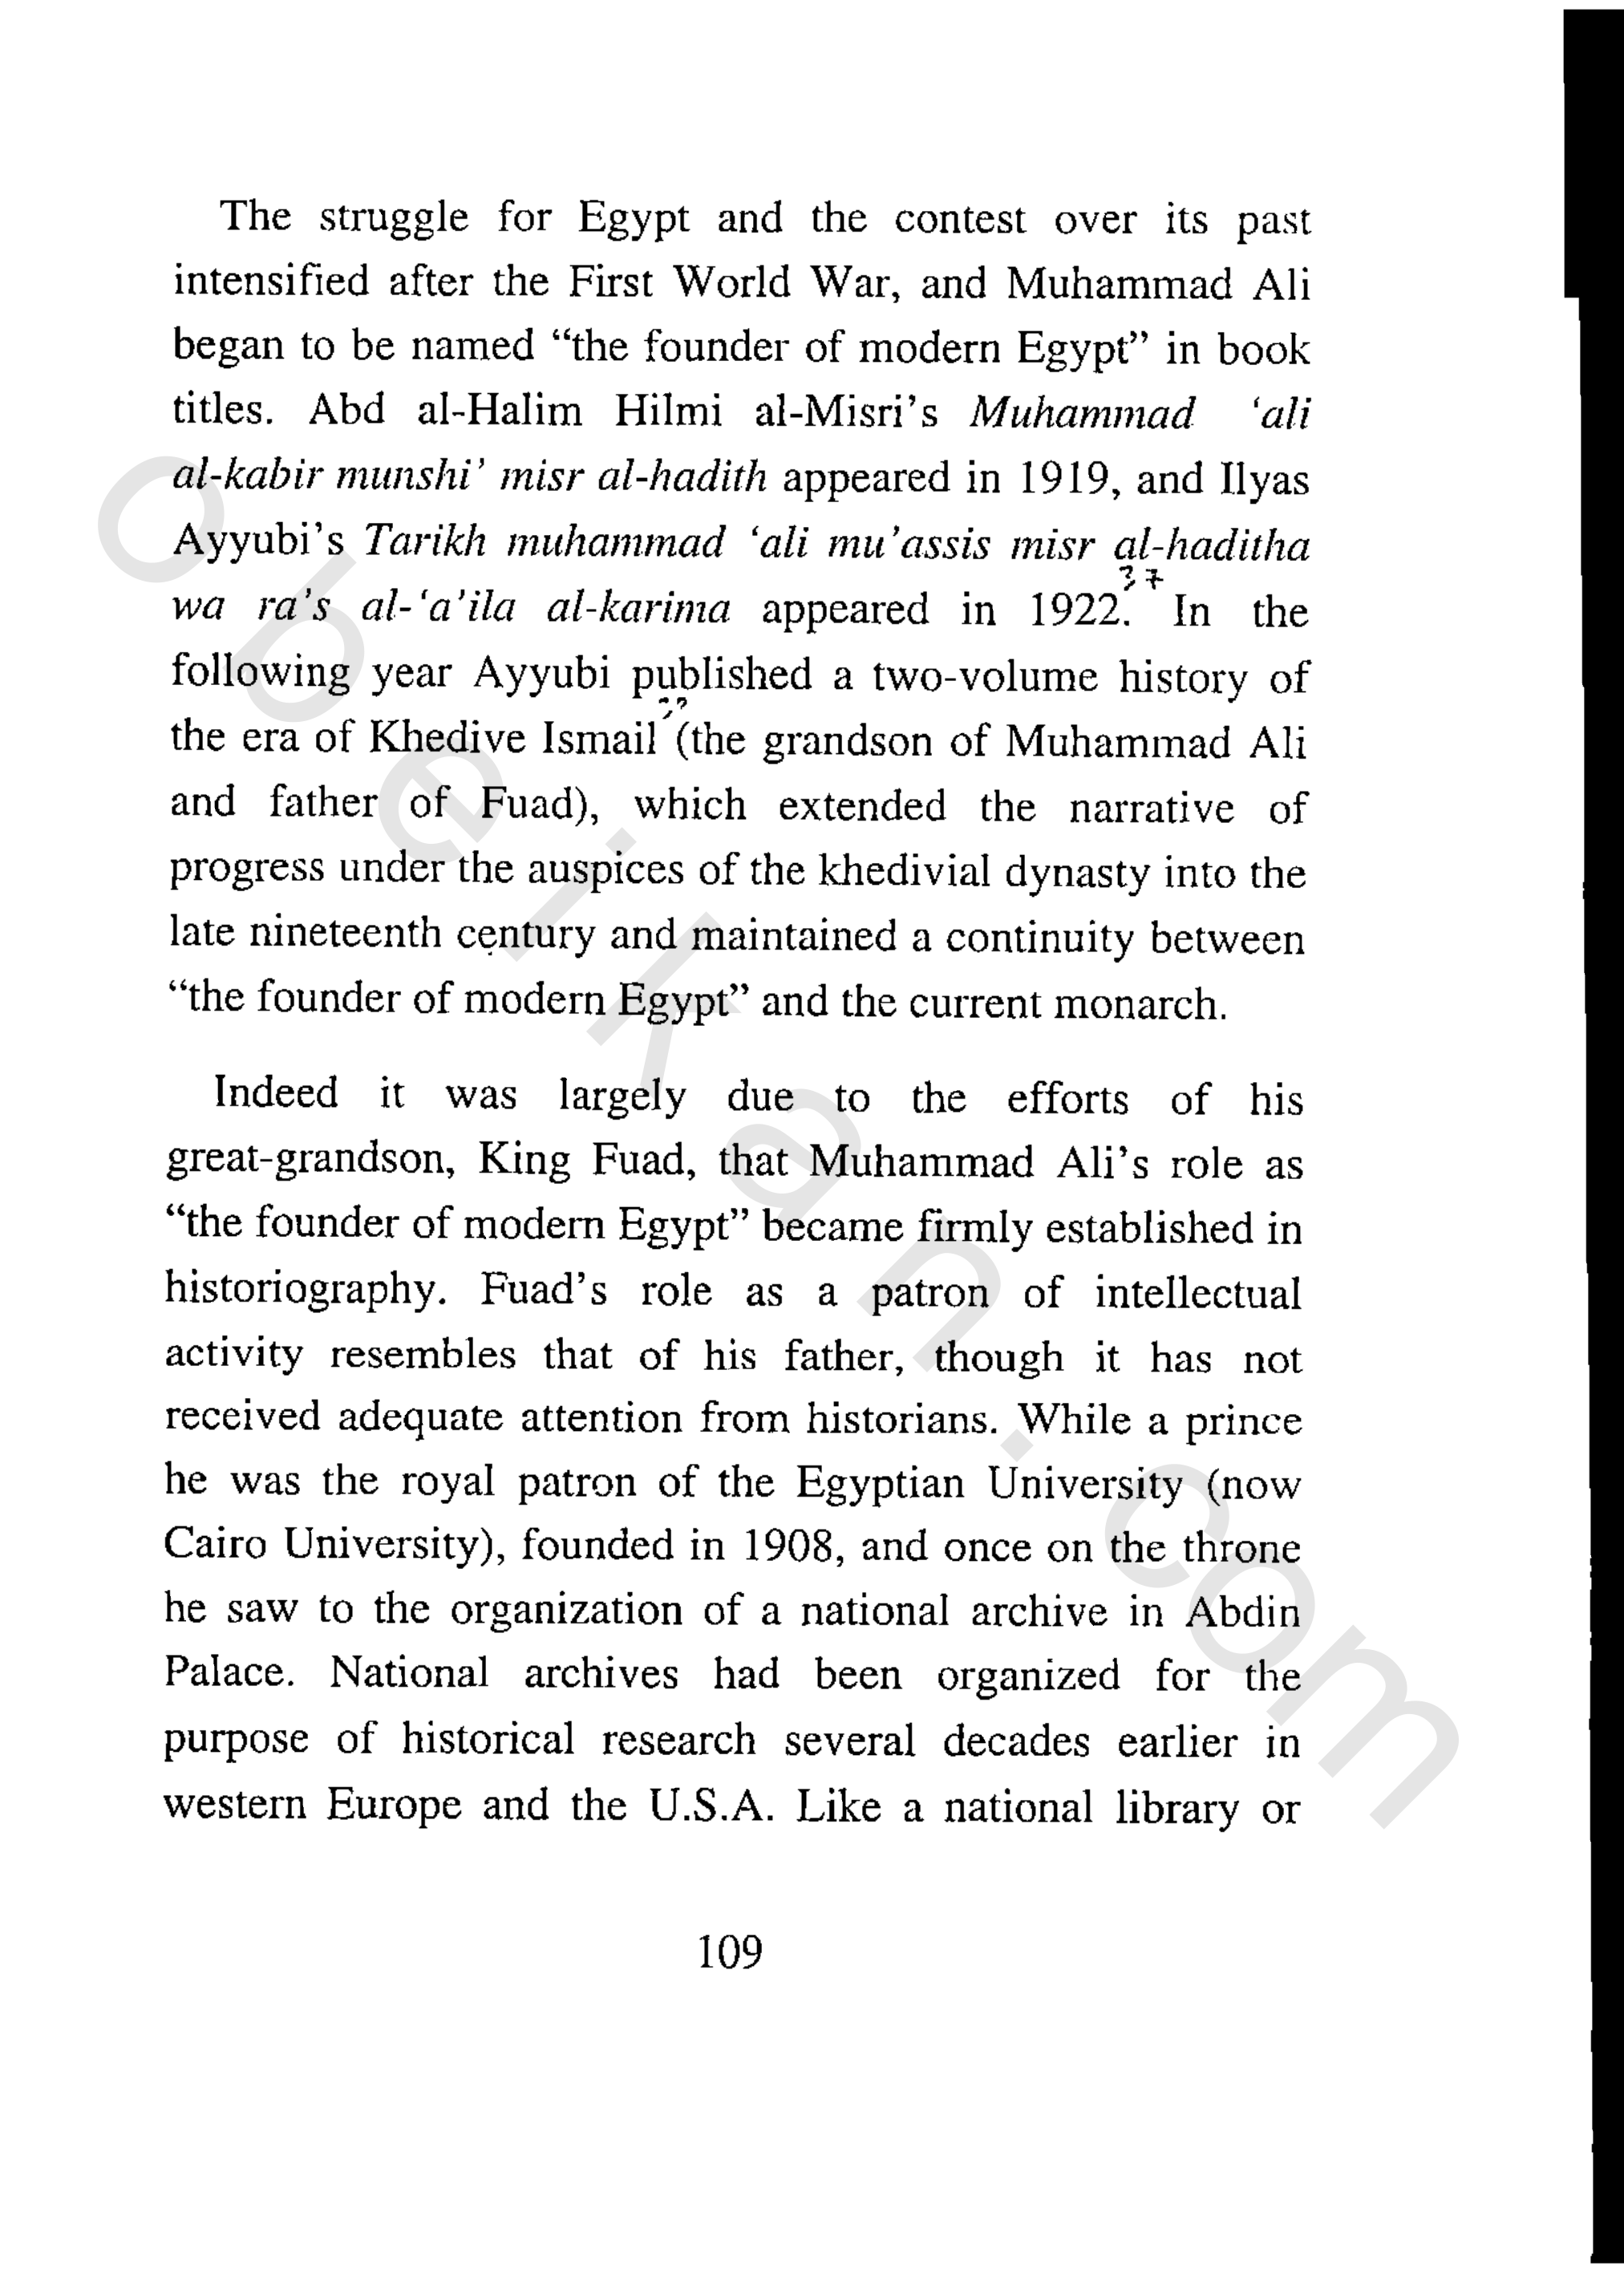 The struggle for Egypt and the contest over its past
intensified after the First World War, and Muhammad Ali
began to be named “the founder of modern Egypt” in book
titles. Abd al-Halim Hilmi al-Misri’s Muhammad ‘ali
al-kabir munshi’ misr al-hadith appeared in 1919, and Ilyas
Ayyubi’s Tarikh muhammad ‘ali mu’assis misr al-haditha
wa ra’s al-‘a’ila al-karima appeared in 1922.37 In the
following year Ayyubi published a two-volume history of
the era of Khedive Ismail (the grandson of Muhammad Ali
and father of Fuad), which extended the narrative of
progress under the auspices of the khedivial dynasty into the
late nineteenth century and maintained a continuity between
“the founder of modern Egypt” and the current monarch.
Indeed it was largely due to the efforts of his
great-grandson, King Fuad, that Muhammad Ali’s role as
“the founder of modern Egypt” became firmly established in
historiography. Fuad’s role as a patron of intellectual
activity resembles that of his father, though it has not
received adequate attention from historians. While a prince
he was the royal patron of the Egyptian University (now
Cairo University), founded in 1908, and once on the throne
he saw to the organization of a national archive in Abdin
Palace. National archives had been organized for the
purpose of historical research several decades earlier in
western Europe and the U.S.A. Like a national library or
109
obeikan.com